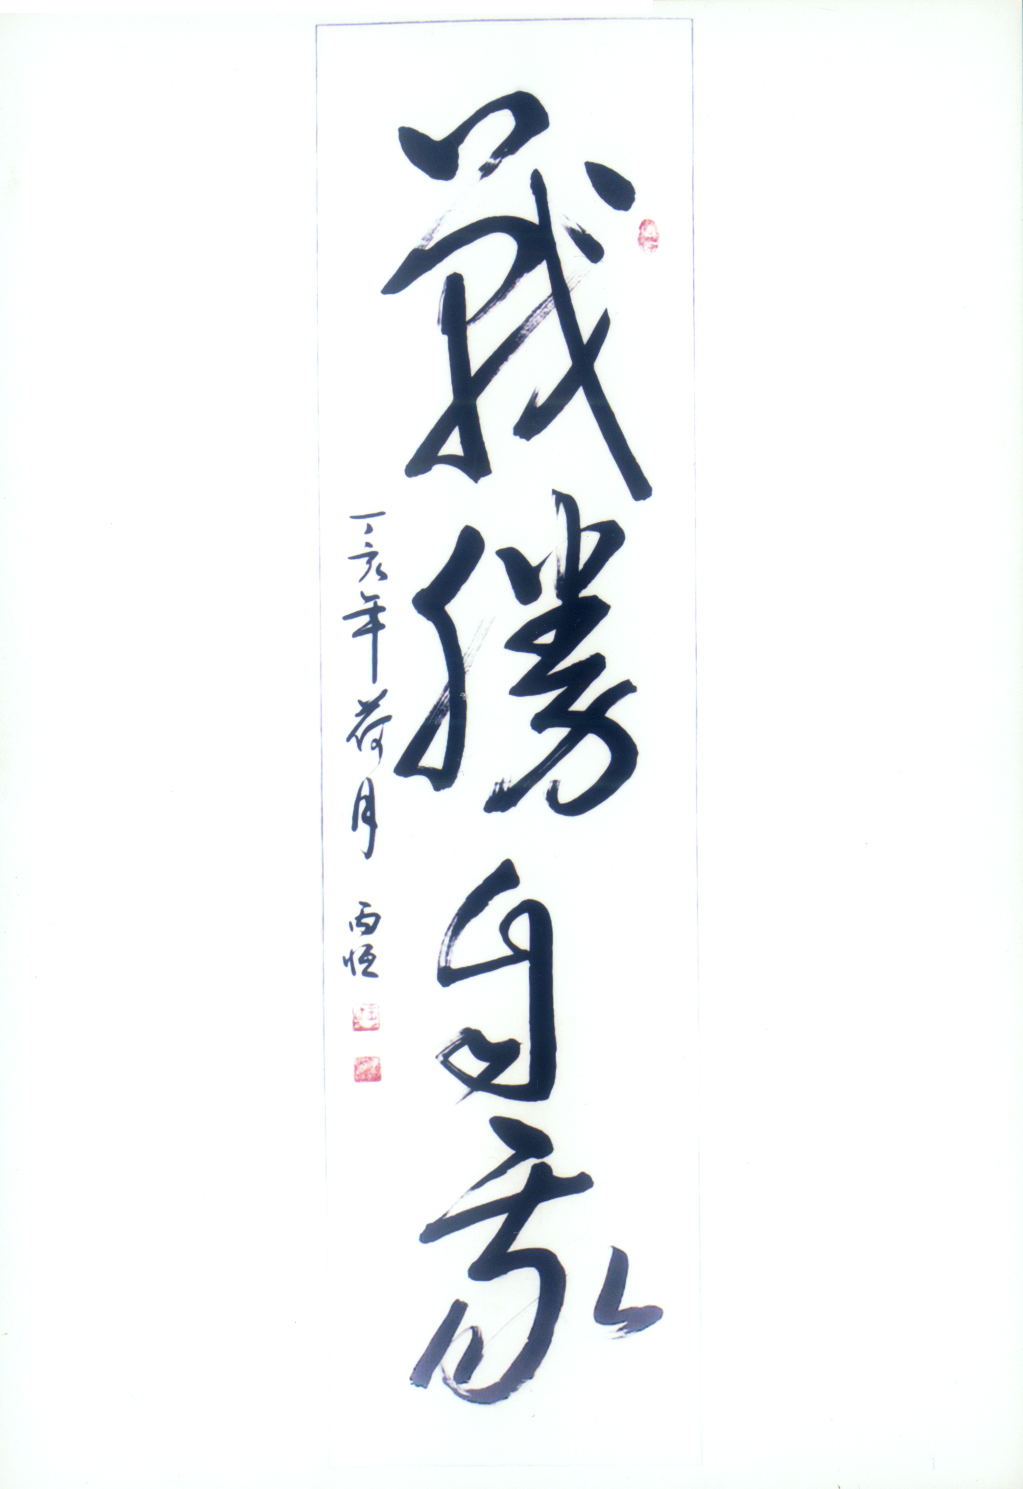 戰勝自我
丁亥年荷月 丙恒